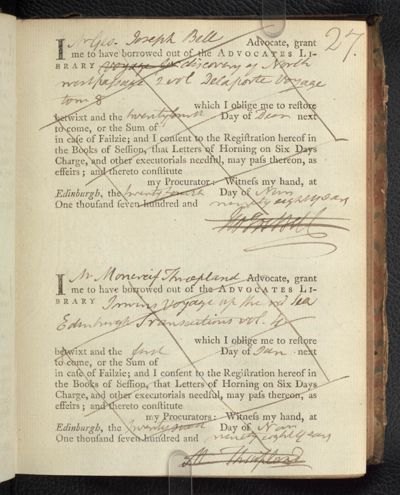 27.
I Mr Geo. Joseph Bell Advocate, grant
me to have borrowed out of the ADVOCATES LI-
BRARY Voyage for discovery of North
west passage 2 vol Delaporte Voyage
tom 8
which I oblige me to reſtore
betwixt and the twenty fourth Day of Decr next
to come, or the Sum of
in caſe of Failzie; and I conſent to the Regiſtration hereof in
the Books of Seſſion, that Letters of Horning on Six Days
Charge, and other executorials needful, may paſs thereon, as
effeirs; and thereto conſtitute
my Procurator: Witneſs my hand, at
Edinburgh, the twenty fourth Day of Novr
One thouſand ſeven hundred and ninety eight years
Jos Bell
I Mr Moncreif Threipland Advocate, grant
me to have borrowed out of the ADVOCATES LI-
BRARY Irwins Voyage up the red Sea
Edinburgh Transactions vol. 4
which I oblige me to reſtore
betwixt and the Day of Jan next
to come, or the Sum of
in caſe of Failzie; and I conſent to the Regiſtration hereof in
the Books of Seſſion, that Letters of Horning on Six Days
Charge, and other executorials needful, may paſs thereon, as
effeirs; and thereto conſtitute
my Procurators: Witneſs my hand, at
Edinburgh, the Day of Novr
One thouſand ſeven hundred and ninety eight years
M Threipland